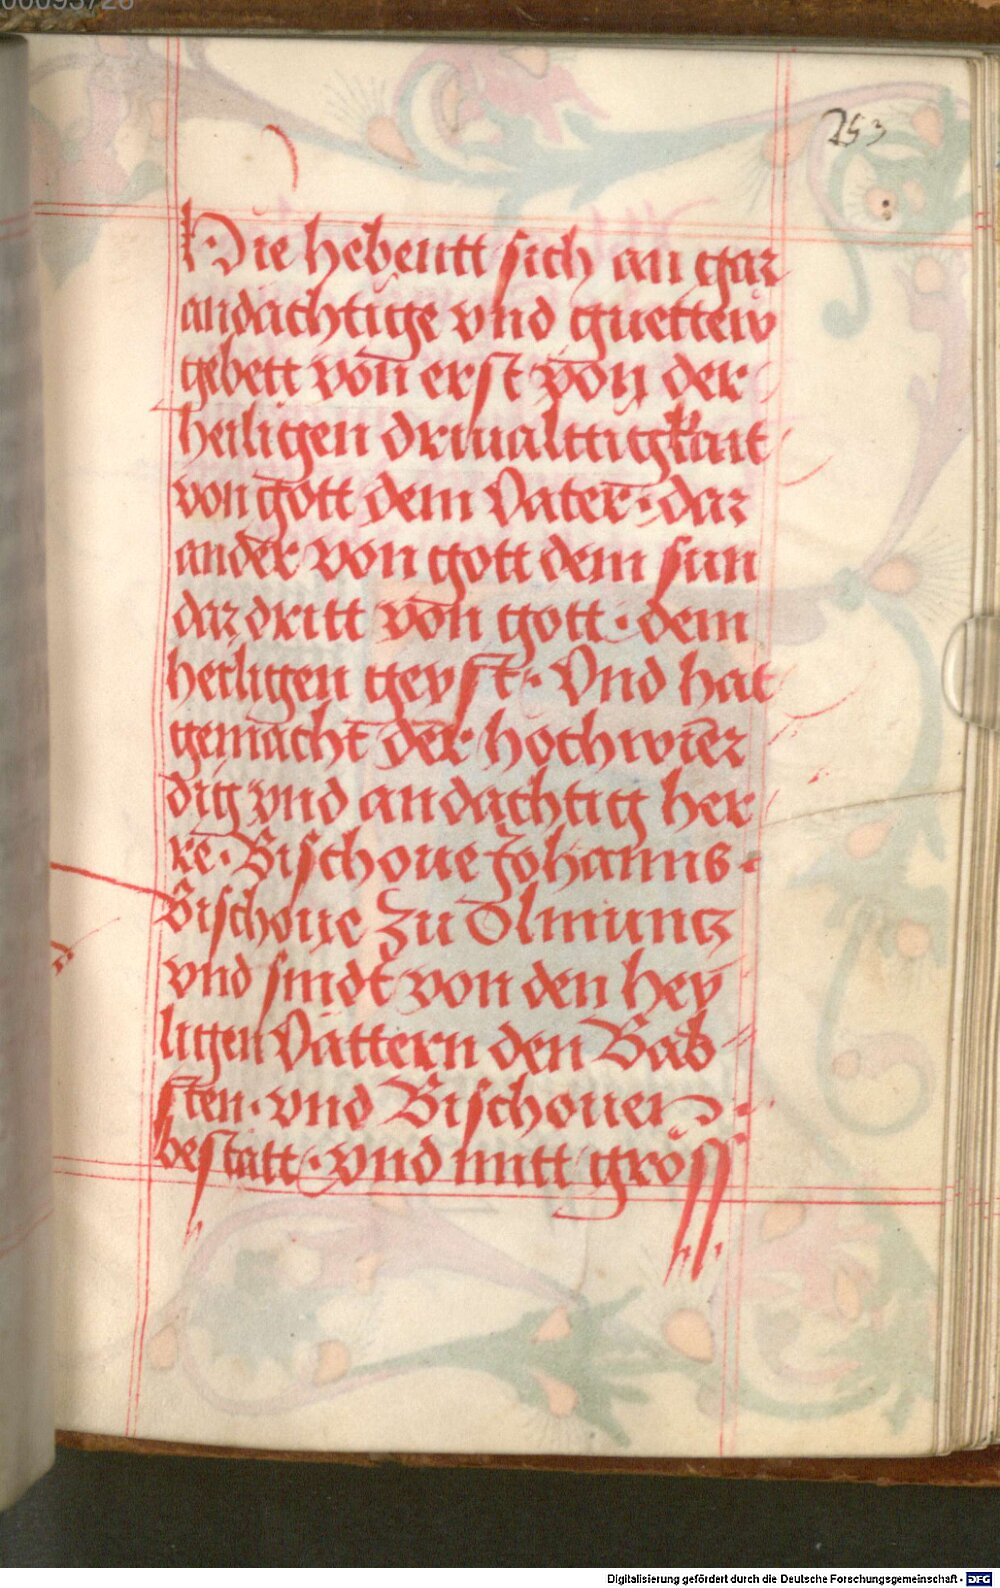 00093726
253
Hie hebentt sich an gar
andächtige vnd guettew
gebett von erst von der
heiligen driualttigkait
von gott dem Vater · daz
ander von gott dem sun
daz dritt von gott · dem
heiligen geyst · Vnd hat
gemacht der hochwier
dig vnd andächtig her
re · Bischoue Johanns ·
Bischoue zu Olmuncz
vnd sindt von den hey
ligen Vättern den Bäb
sten · vnd Bischouen ·
bestätt · vnd mitt gröss
Digitalisierung gefördert durch die Deutsche Forschungsgemeinschaft - DFG